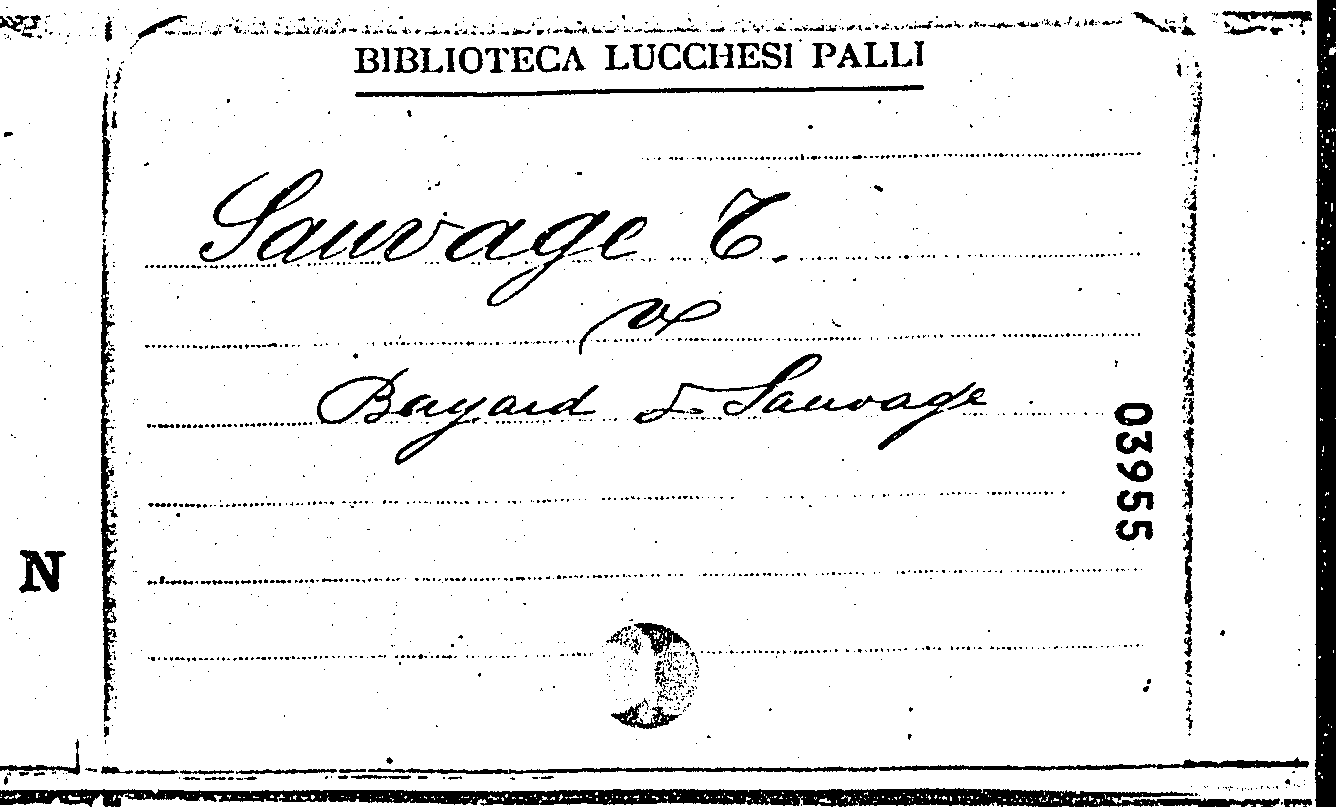 BIBLIOTECA LUCCHESI PALLI
Sauvage T.
V
Bayard & Sauvage
03955
N